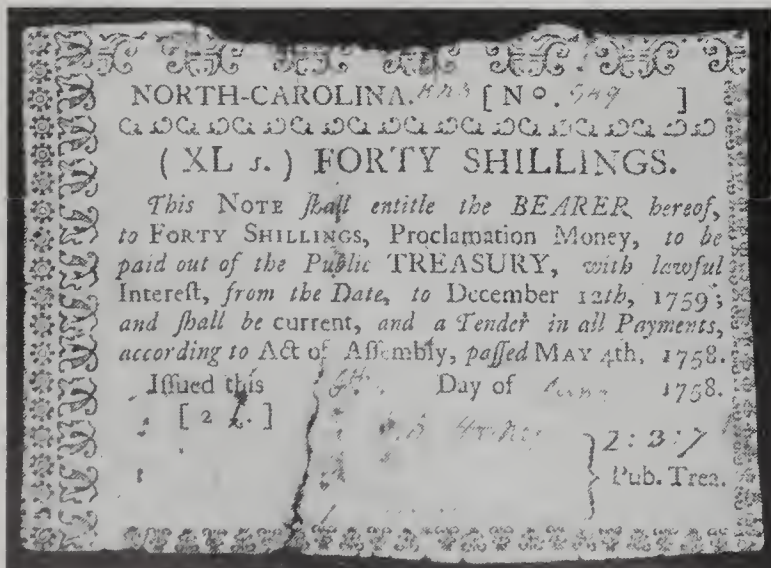 NORTH-CAROLINA. [ Nº. 549 ]
( XL s. ) FORTY SHILLINGS.
This NOTE ſhall entitle the BEARER hereof,
to FORTY SHILLINGS, Proclamation Money, to be
paid out of the Public TREASURY, with lawful
Intereſt, from the Date, to December 12th, 1759;
and ſhall be current, and a Tender in all Payments,
according to Act of Aſſembly, paſſed MAY 4th, 1758.
Iſſued this Day of 1758.
[ 2 L. ]
2:3:7
Pub. Trea.